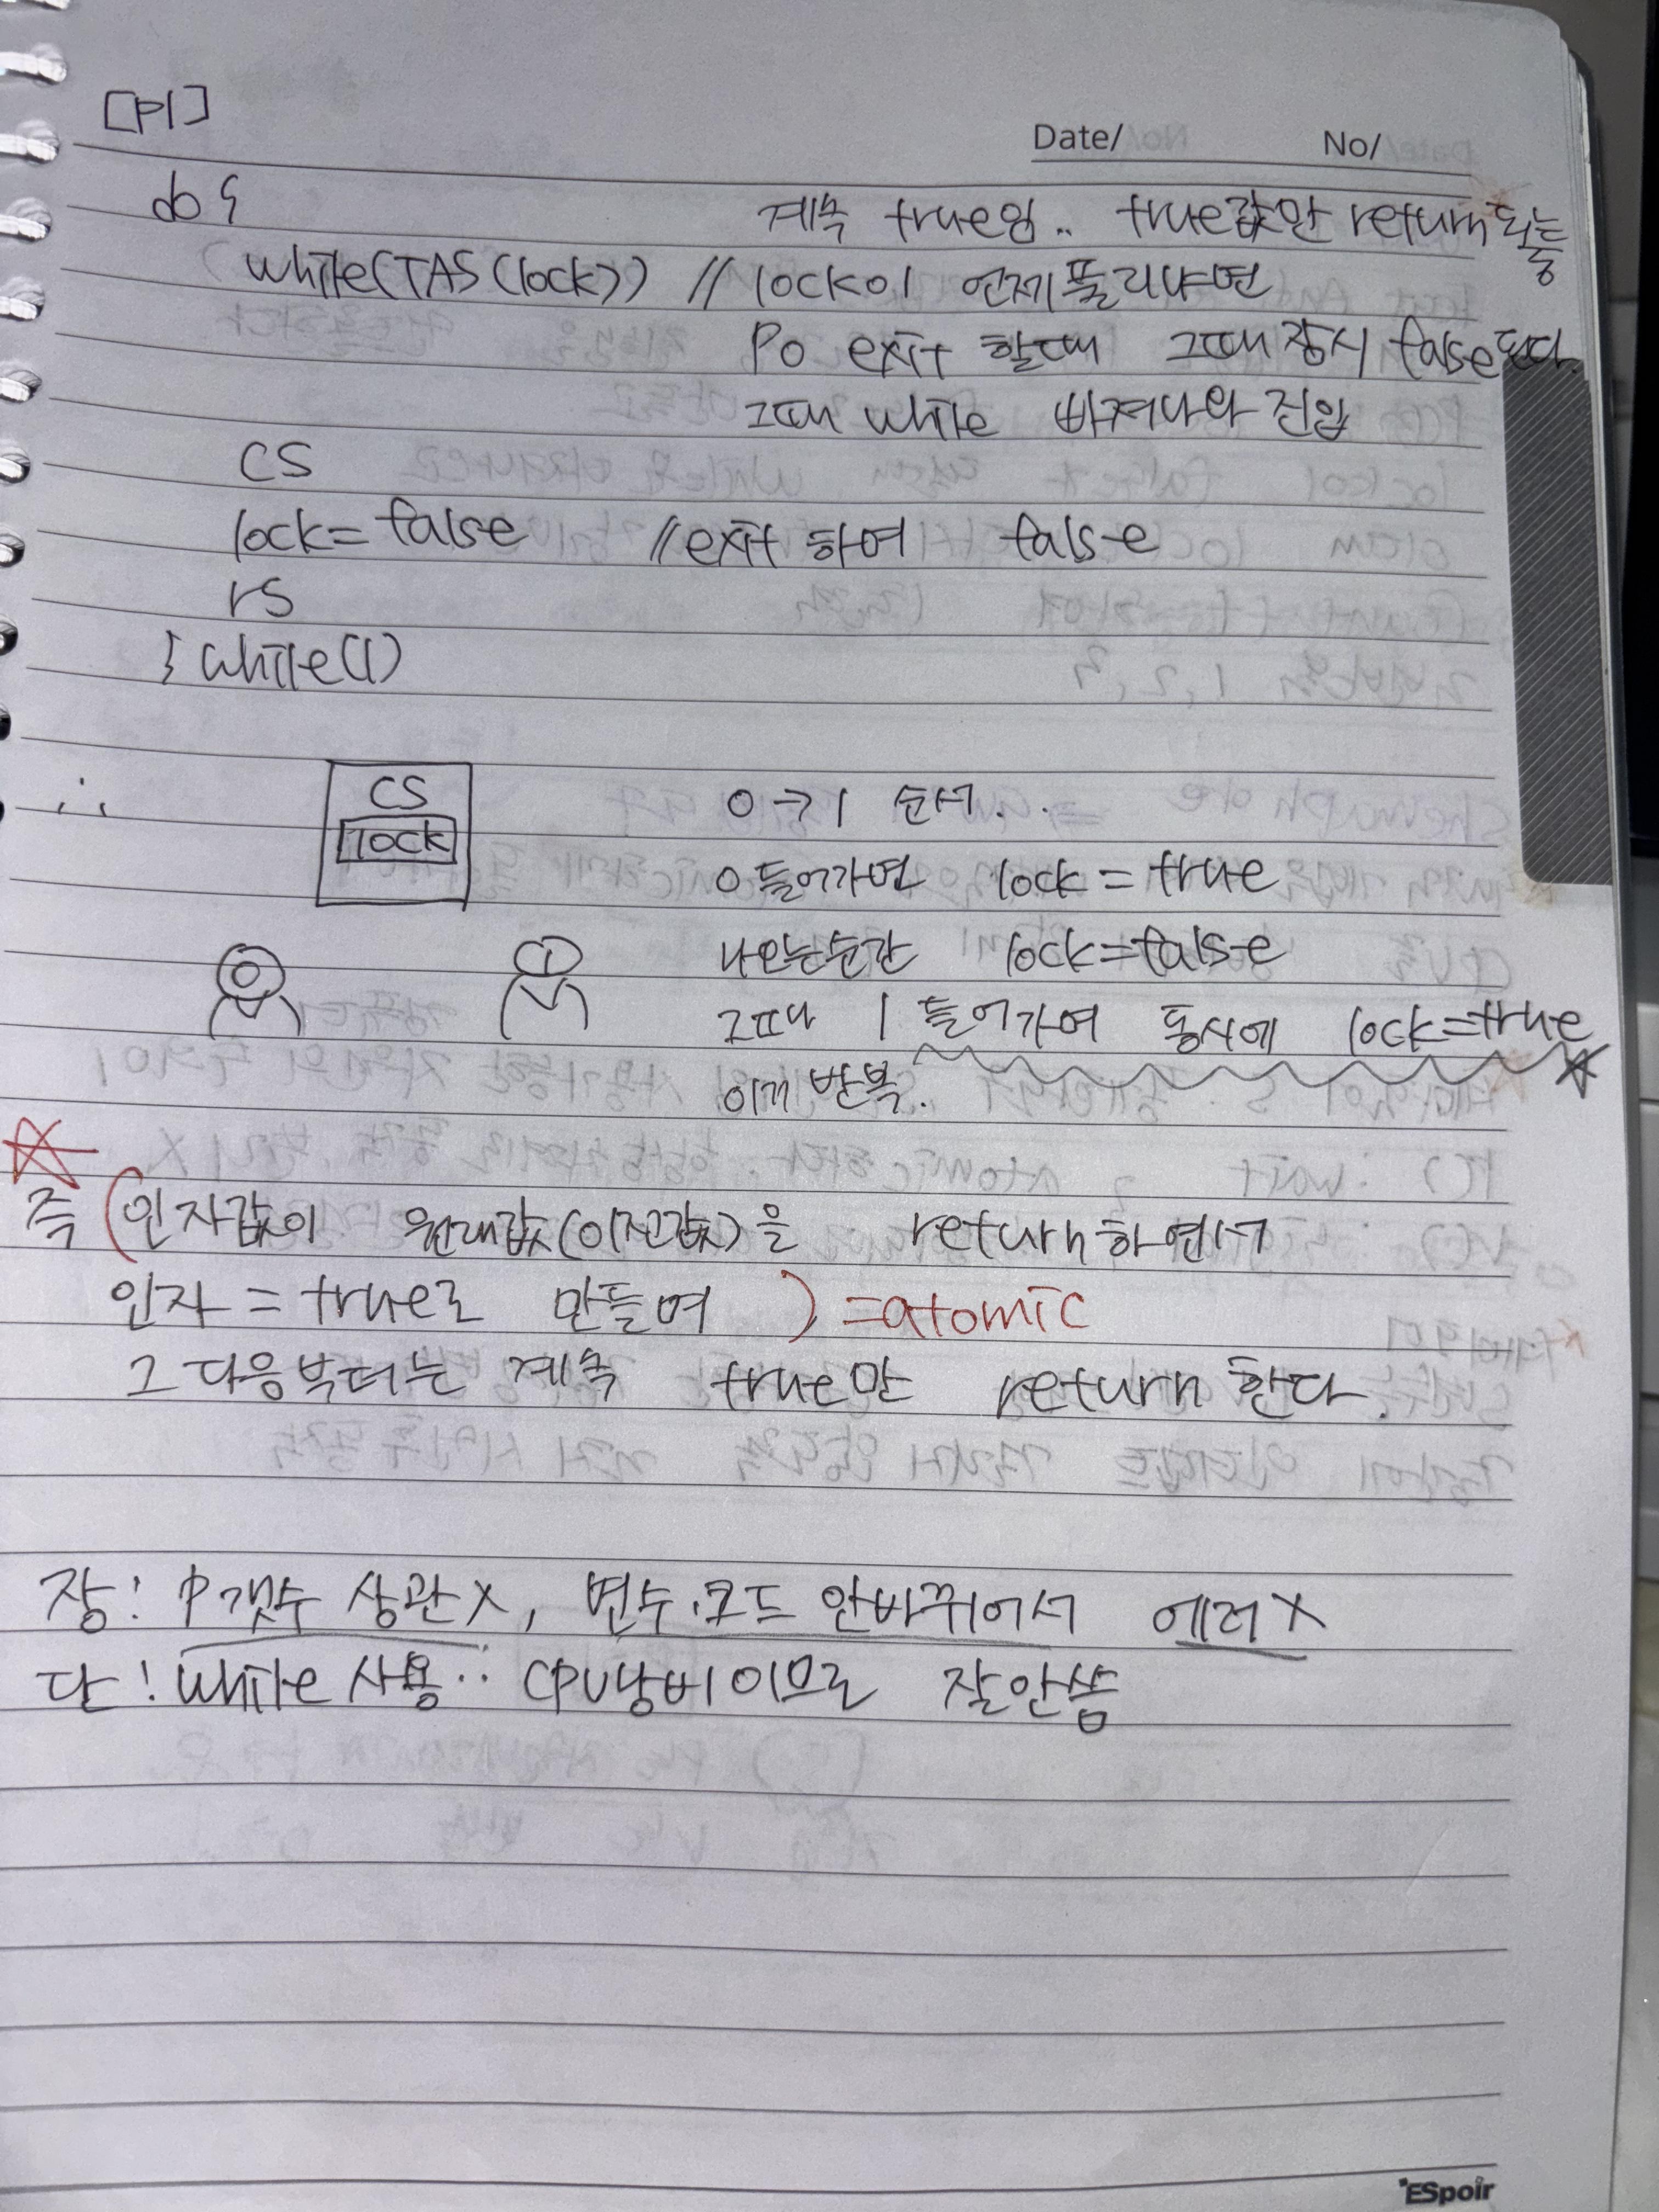 [P1]
Date/ No/
do {
계속 true임.. true값만 return되는중
while(TAS(lock)) // lock이 언제풀리냐면
P0 exit 할때 그때 잠시 false된다.
그때 while 빠져나와 진입
CS
lock = false //exit 하여 false
rS
} while(1)
∴ CS 0→1 순서.
lock 0 들어가면 lock = true
0 1 나오는순간 lock=false
그때 1 들어가며 동시에 lock=true
이게 반복.
즉 (인자값이 원래값(이전값)을 return하면서
인자 = true로 만들며 ) =atomic
그 다음부터는 계속 true만 return 한다.
장! P갯수 상관X, 변수·코드 안바뀌어서 에러X
단! while 사용.. CPU낭비이므로 잘안씀
ESpoir